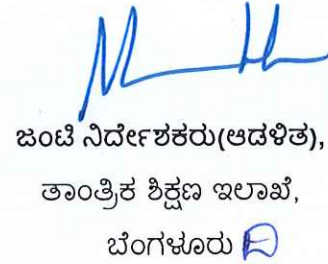 ಜಂಟಿ ನಿರ್ದೇಶಕರು(ಆಡಳಿತ),
ತಾಂತ್ರಿಕ ಶಿಕ್ಷಣ ಇಲಾಖೆ,
ಬೆಂಗಳೂರು